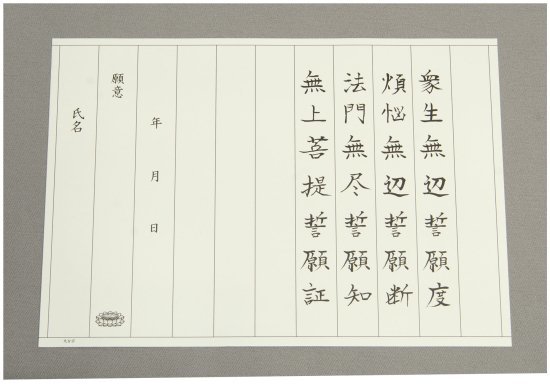 衆生無辺誓願度
煩悩無辺誓願断
法門無尽誓願知
無上菩提誓願証
年 月 日
願意
氏名